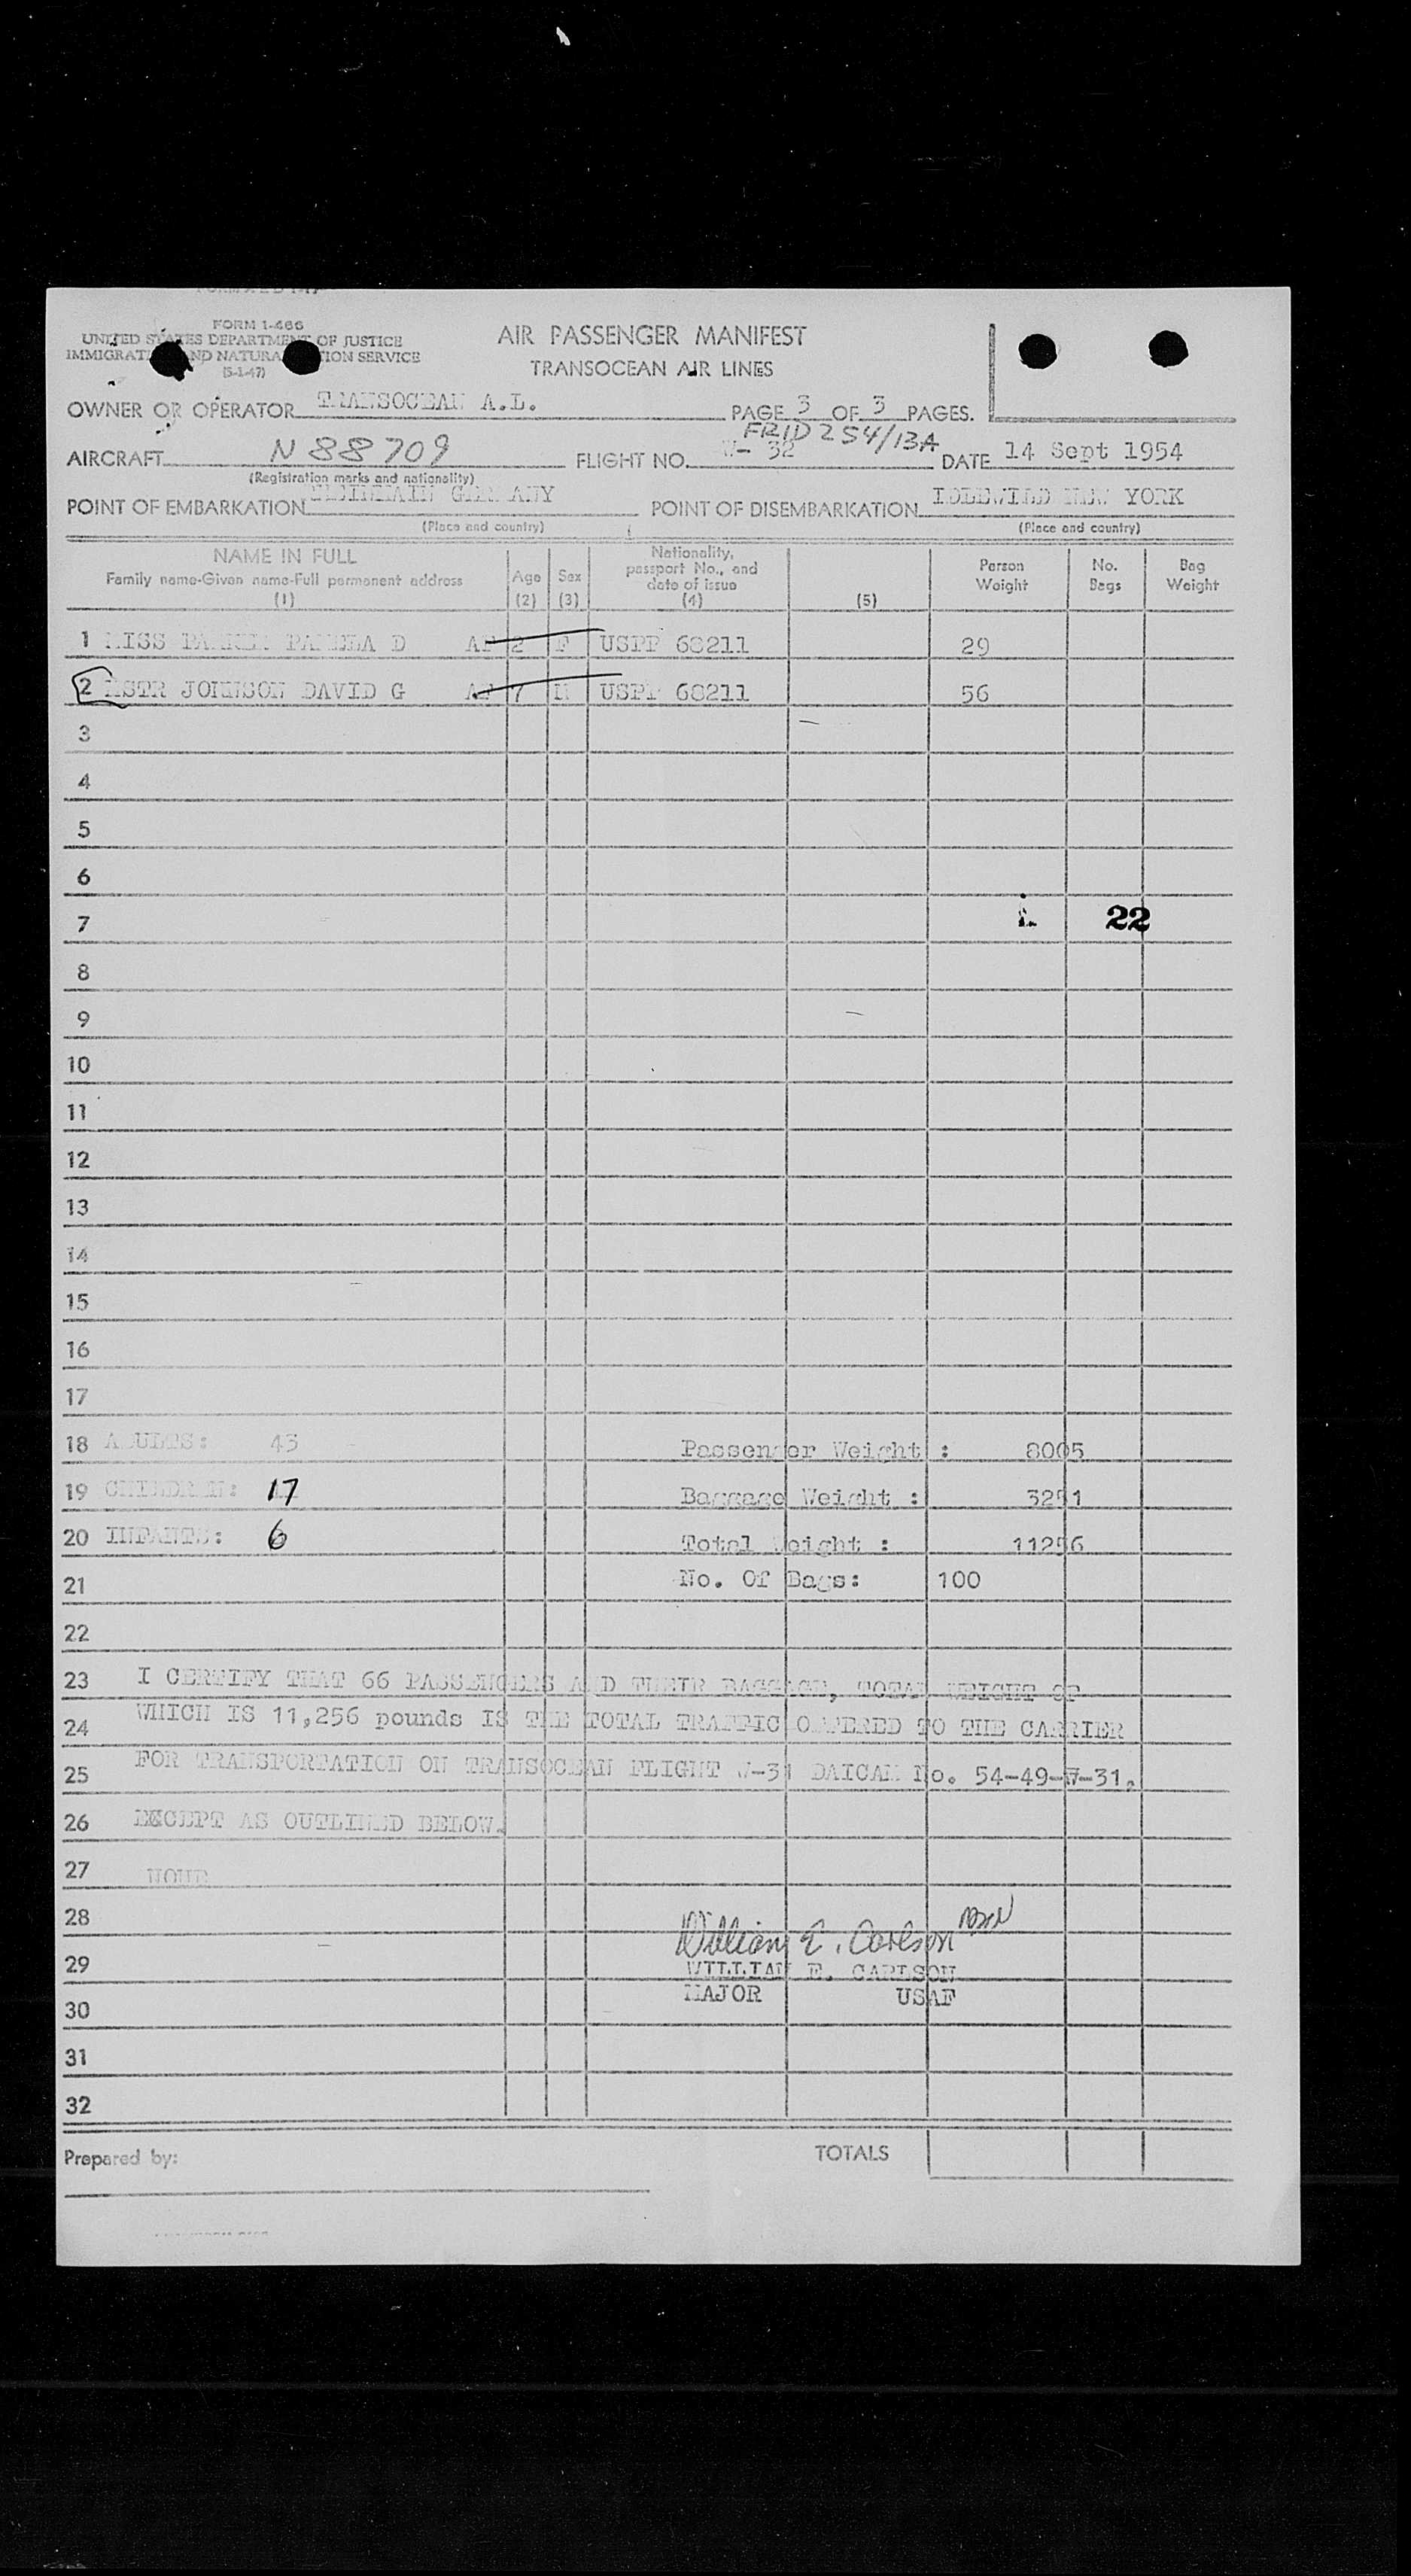 FORM 1-466
UNITED STATES DEPARTMENT OF JUSTICE
IMMIGRAT ND NATURA TION SERVICE
(5-1-47)
AIR PASSENGER MANIFEST
TRANSOCEAN AIR LINES
OWNER OR OPERATOR TRANSOCEAN A.L. PAGE 3 OF 3 PAGES.
FRID 254/13A
AIRCRAFT N 88709 FLIGHT NO. W-32 DATE 14 Sept 1954
(Registration marks and nationality)
POINT OF EMBARKATION GERMANY POINT OF DISEMBARKATION IDLEWILD NEW YORK
(Place and country) (Place and country)
NAME IN FULL Family name-Given name-Full permanent address (1) Age (2) Sex (3) Nationality, passport No., and date of issue (4) (5) Person Weight No. Bags Bag Weight
1 MISS PAMELA D 2 F USPP 68211 29
2 MSTR JOHNSON DAVID G 7 M USPP 68211 56
3
4
5
6
7 22
8
9
10
11
12
13
14
15
16
17
18 ADULTS: 43 Passenger Weight : 8005
19 CHILDREN: 17 Baggage Weight : 3251
20 INFANTS: 6 Total Weight : 11256
21 No. Of Bags: 100
22
23 I CERTIFY THAT 66 PASSENGERS AND THEIR BAGGAGE, TOTAL WEIGHT OF
24 WHICH IS 11,256 pounds IS THE TOTAL TRAFFIC OFFERED TO THE CARRIER
25 FOR TRANSPORTATION ON TRANSOCEAN FLIGHT W-31 DAICAM No. 54-49-W-31,
26 EXCEPT AS OUTLINED BELOW.
27 NONE
28 William E. Carlson
29 WILLIAM E. CARLSON
30 MAJOR USAF
31
32
Prepared by: TOTALS